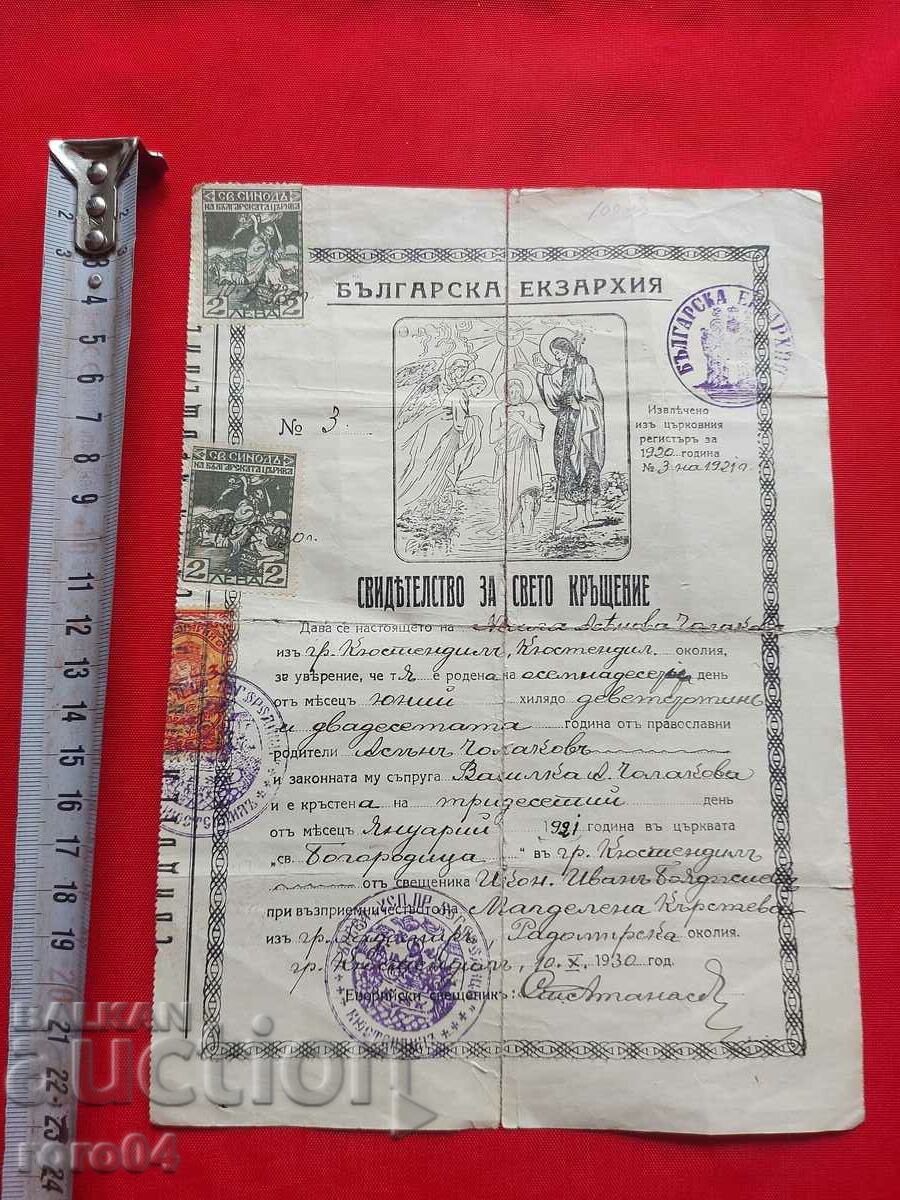 СВ. СИНОДЪ
НА БЪЛГАРСКАТА ЦЪРКВА
2 ЛЕВА 2
БЪЛГАРСКА ЕКЗАРХИЯ
БЪЛГАРСКА ЕКЗАРХИЯ
№ 3
Извлѣчено
изъ църковния
регистъръ за
1920 година
№ 3 на 1921 г.
СВ. СИНОДЪ
НА БЪЛГАРСКАТА ЦЪРКВА
2 ЛЕВА 2
СВИДѢТЕЛСТВО ЗА СВЕТО КРЪЩЕНИЕ
Дава се настоящето на Асѣнова Чолакова
изъ гр. Кюстендилъ, Кюстендил. околия,
за уверение, че тя е родена на осемнадесети день
отъ мѣсецъ юний хилядо деветстотинъ
и двадесетата година отъ православни
родители Асѣнъ Чолаковъ
и законната му съпруга Василка А. Чолакова
и е кръстена на тридесетий день
отъ мѣсецъ Януарий 1921 година въ църквата
„св. Богородица" въ гр. Кюстендилъ
отъ свещеника Икон. Иванъ
при възприемничеството на Магделена Кърстева
изъ гр. Радомиръ, Радомирска околия.
гр. Кюстендилъ, 10.X. 1930 год.
Енорийски свещеникъ:
КЮСТЕНДИЛЪ
BALKAN
auction
roro04
3 4 5 6 7 8 9 11 12 13 14 15 16 17 18 19 20 21 22 23 24